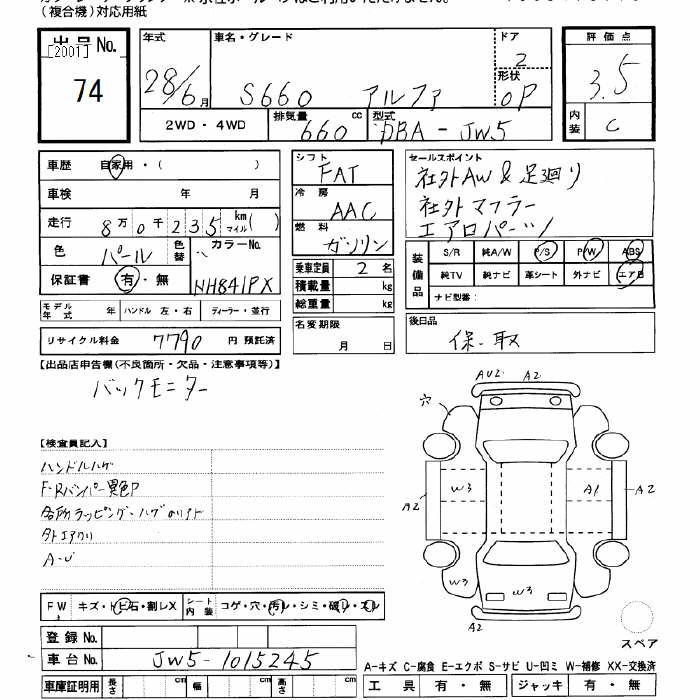 (複合機)対応用紙
出品No.
[2001]
74
年式 車名・グレード ドア
28/6月 S660 アルファ 2
形状 OP
2WD・4WD 排気量 660 cc 型式 DBA-JW5
評価点
3.5
内装 C
車歴 自家用・( )
車検 年 月
走行 8万0千235 km マイル( )
色 パール 色替 カラーNo. NH841PX
保証書 有・無
モデル年式 年 ハンドル 左・右 ディーラー・並行
リサイクル料金 7790 円 預託済
シフト FAT
冷房 AAC
燃料 ガソリン
乗車定員 2 名
積載量 kg
総重量 kg
名変期限
月 日
セールスポイント
社外AW & 足廻り
社外マフラー
エアロパーツ
装備品 S/R 純A/W P/S P/W ABS
純TV 純ナビ 革シート 外ナビ エアB
ナビ型番:
後日品
保-取
【出品店申告欄(不良箇所・欠品・注意事項等)】
バックモニター
【検査員記入】
ハンドルハゲ
F・Rバンパー異色P
各所ラッピング・ハゲ
外エアクリ
穴 AU2 A2
A2 W3 A1 A2
W3 W3
A2
スペア
FW キズ・トビ石・割レX シート内装 コゲ・穴・汚レ・シミ・破レ・スレ
登録No.
車台No. JW5-1015245
車庫証明用 長さ cm 幅 cm 高さ cm
A-キズ C-腐食 E-エクボ S-サビ U-凹ミ W-補修 XX-交換済
工具 有・無 ジャッキ 有・無